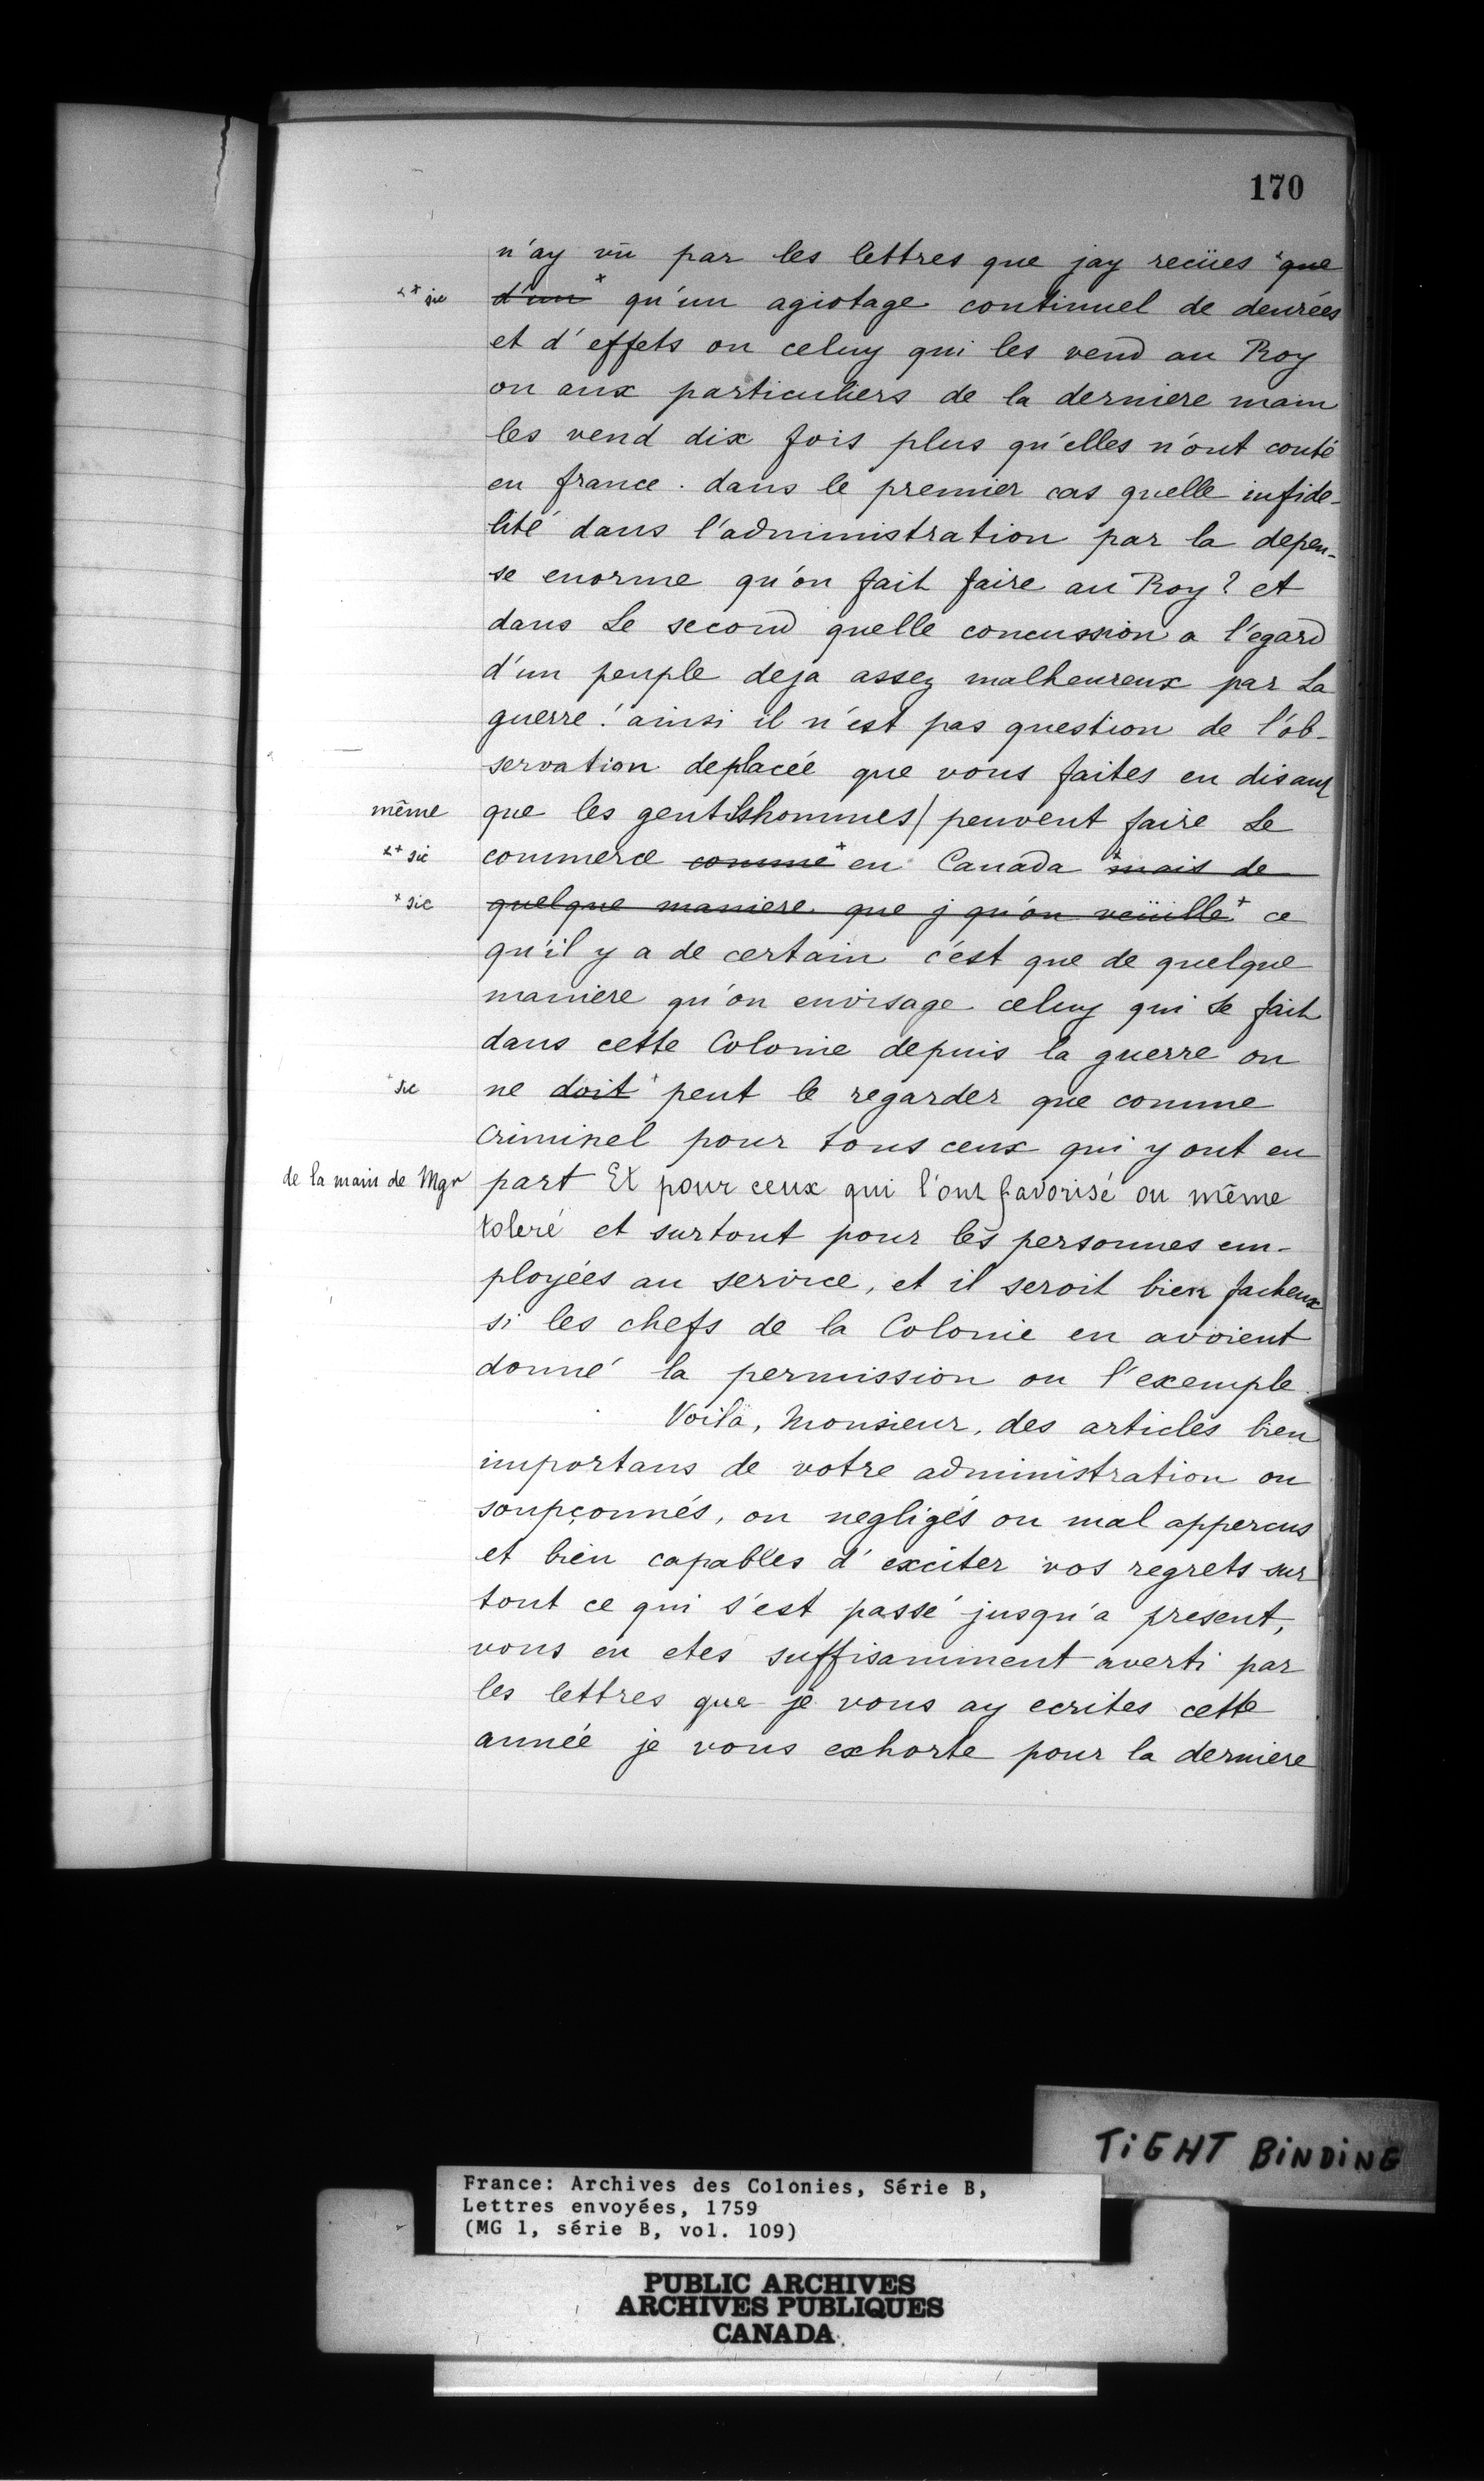 170
n'ay vû par les lettres que jay reciies + que
++ sic d'un + qu'un agiotage continuel de denrées
et d'effets ou celuy qui les vend au Roy
ou aux particuliers de la derniere main
les vend dix fois plus qu'elles n'ont couté
en france. dans le premier cas quelle infide-
lité dans l'administration par la depen-
se enorme qu'on fait faire au Roy? et
dans Le second quelle concussion a l'egard
d'un peuple deja assez malheureux par La
guerre! ainsi il n'est pas question de l'ob-
servation deplacée que vous faites en disant
même que les gentilshommes/ peuvent faire Le
++ sic commerce comme + en Canada + mais de
+ sic quelque maniere que j qu'on veüille + ce
qu'il y a de certain c'est que de quelque
maniere qu'on envisage celuy qui se fait
dans cette Colonie depuis la guerre on
+ sic ne doit + peut le regarder que comme
Criminel pour tous ceux qui y ont eu
de la main de Mgr part Et pour ceux qui l'ont favorisé ou même
toleré et surtout pour les personnes em-
ployées au service, et il seroit bien facheux
si les chefs de la Colonie en avoient
donné la permission ou l'exemple.
Voila, Monsieur, des articles bien
importans de votre administration ou
soupçonnés, ou negligés ou mal appercus
et bien capables d'exciter vos regrets sur
tout ce qui s'est passé jusqu'a present,
vous en etes suffisamment averti par
les lettres que je vous ay ecrites cette
année je vous exhorte pour la derniere
TiGHT BiNDiNG
France: Archives des Colonies, Série B,
Lettres envoyées, 1759
(MG 1, série B, vol. 109)
PUBLIC ARCHIVES
ARCHIVES PUBLIQUES
CANADA